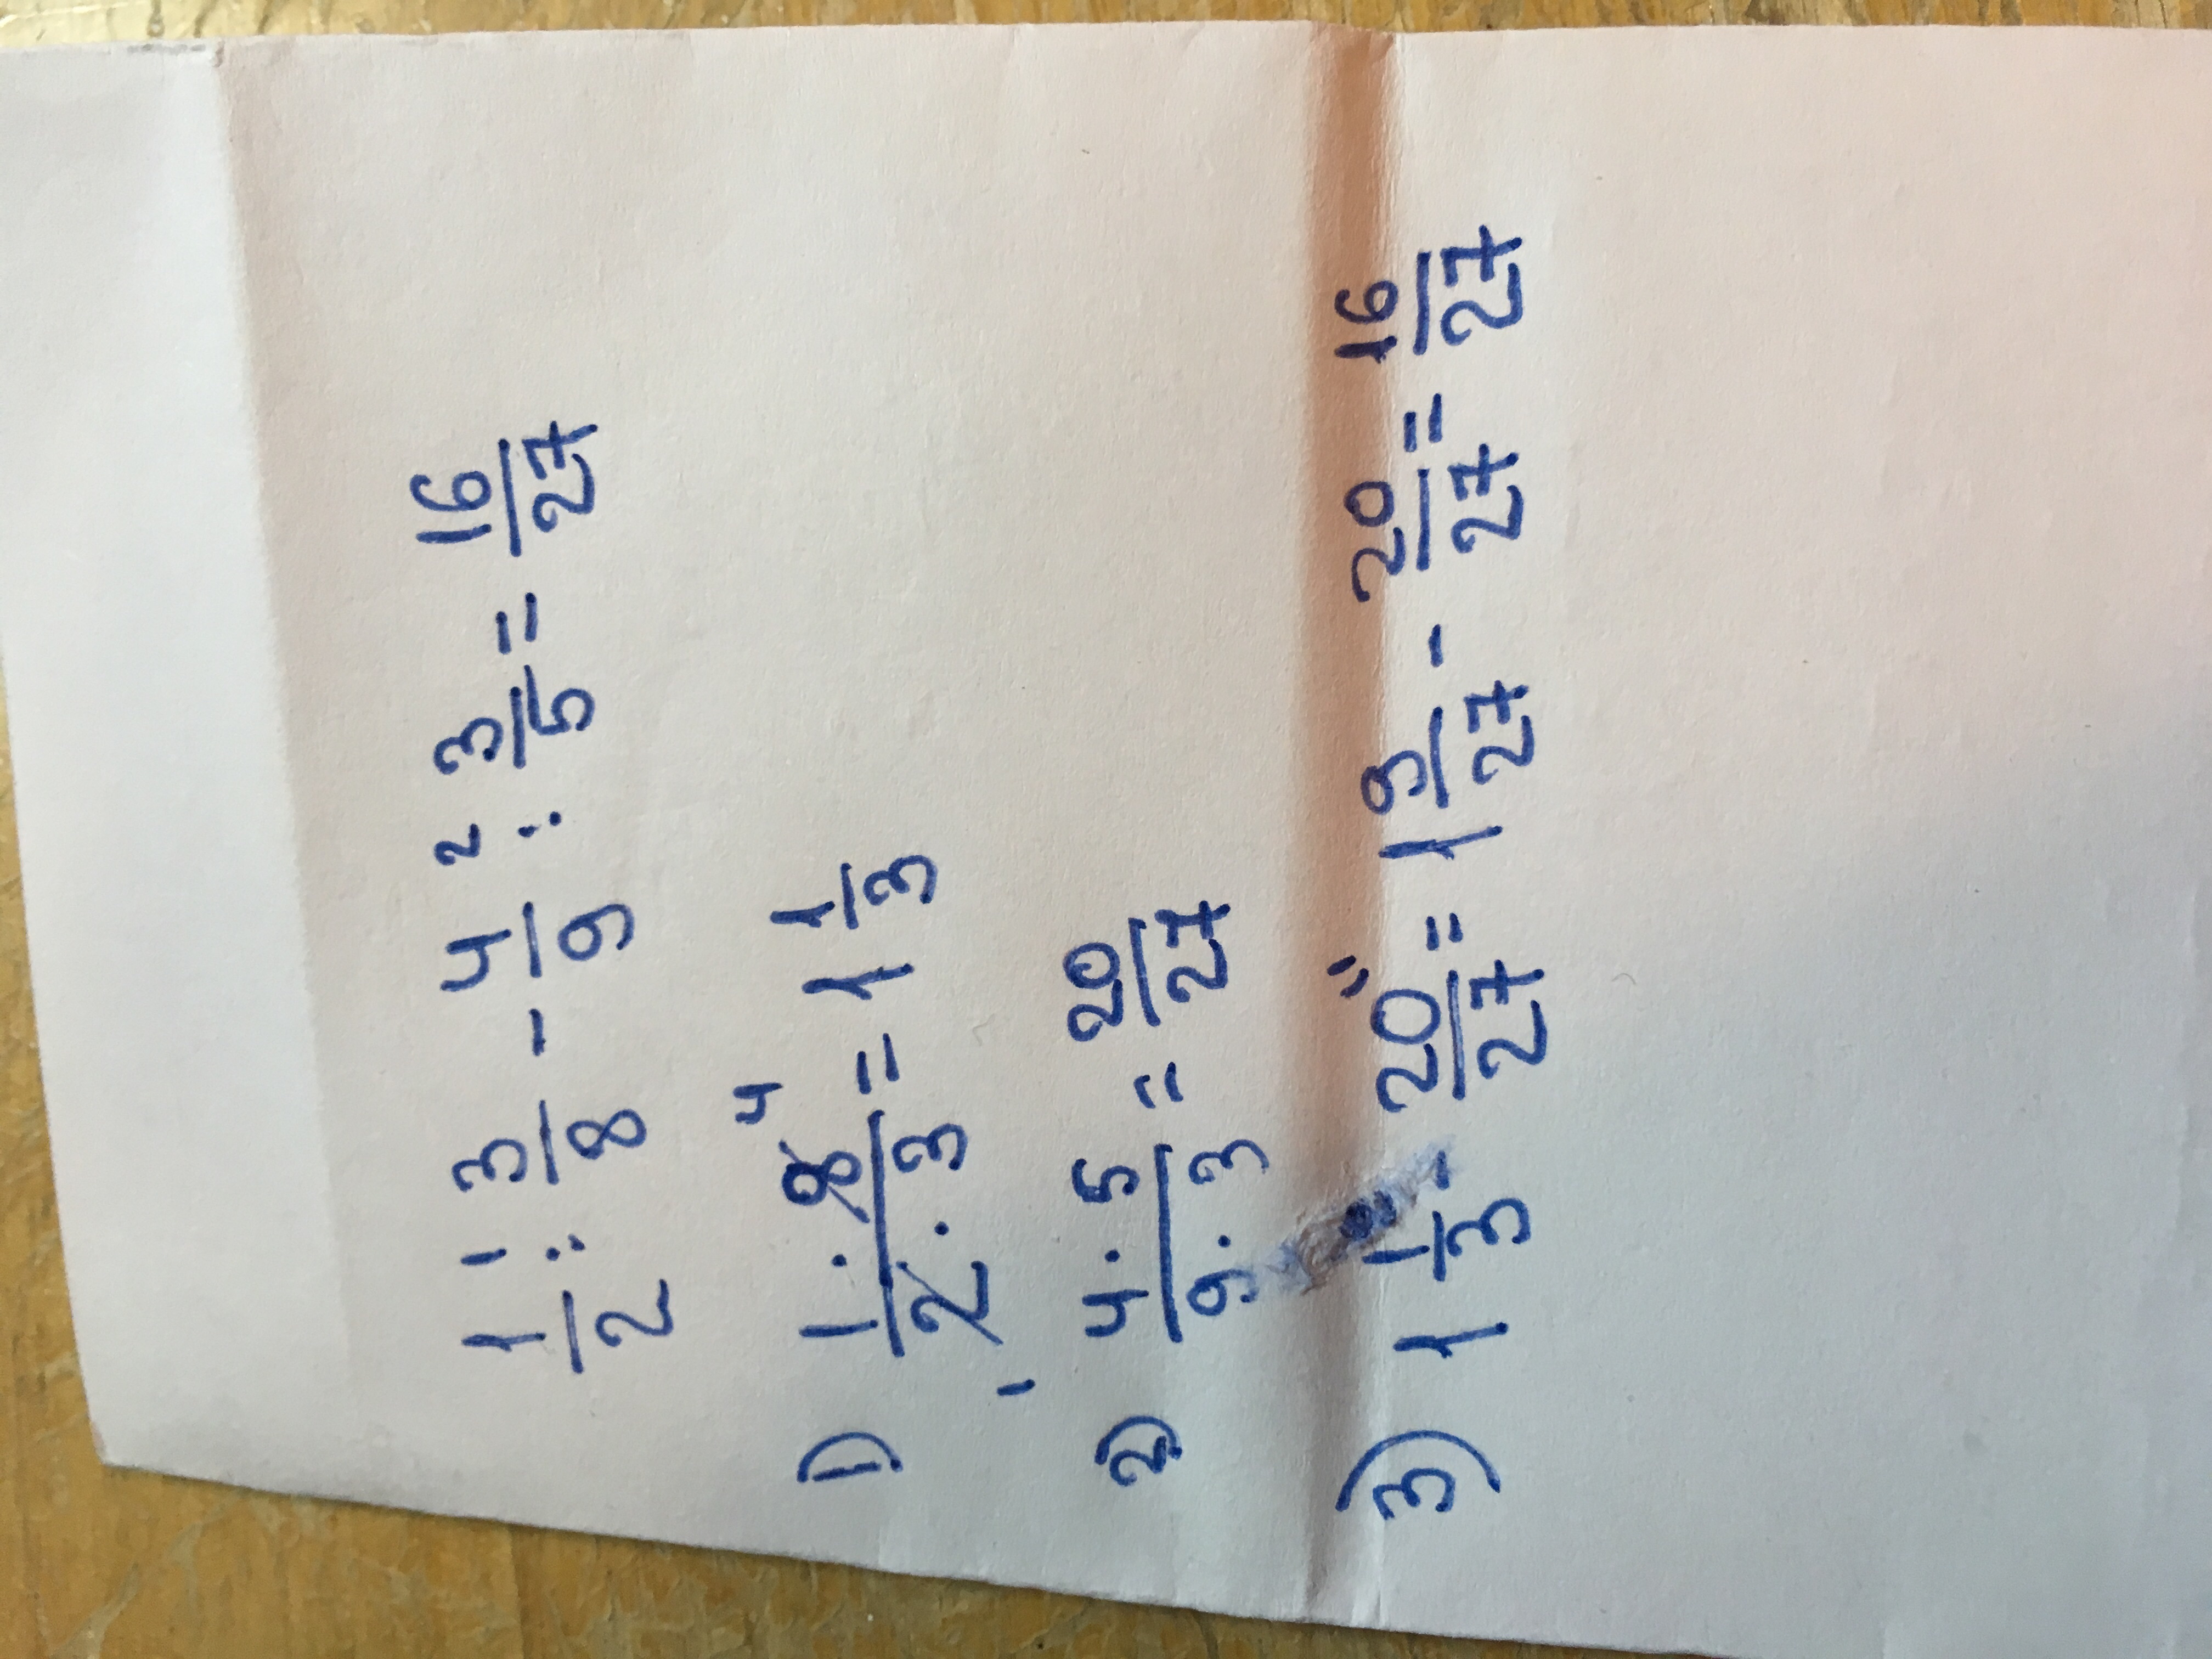 1/2 : ¹ 3/8 - 4/9 : ² 3/5 = 16/27
1) 1·8⁴/2₁·3 = 1 1/3
2) 4·5/9·3 = 20/27
3) 1 1/3 - 20/27 " = 1 9/27 - 20/27 = 16/27